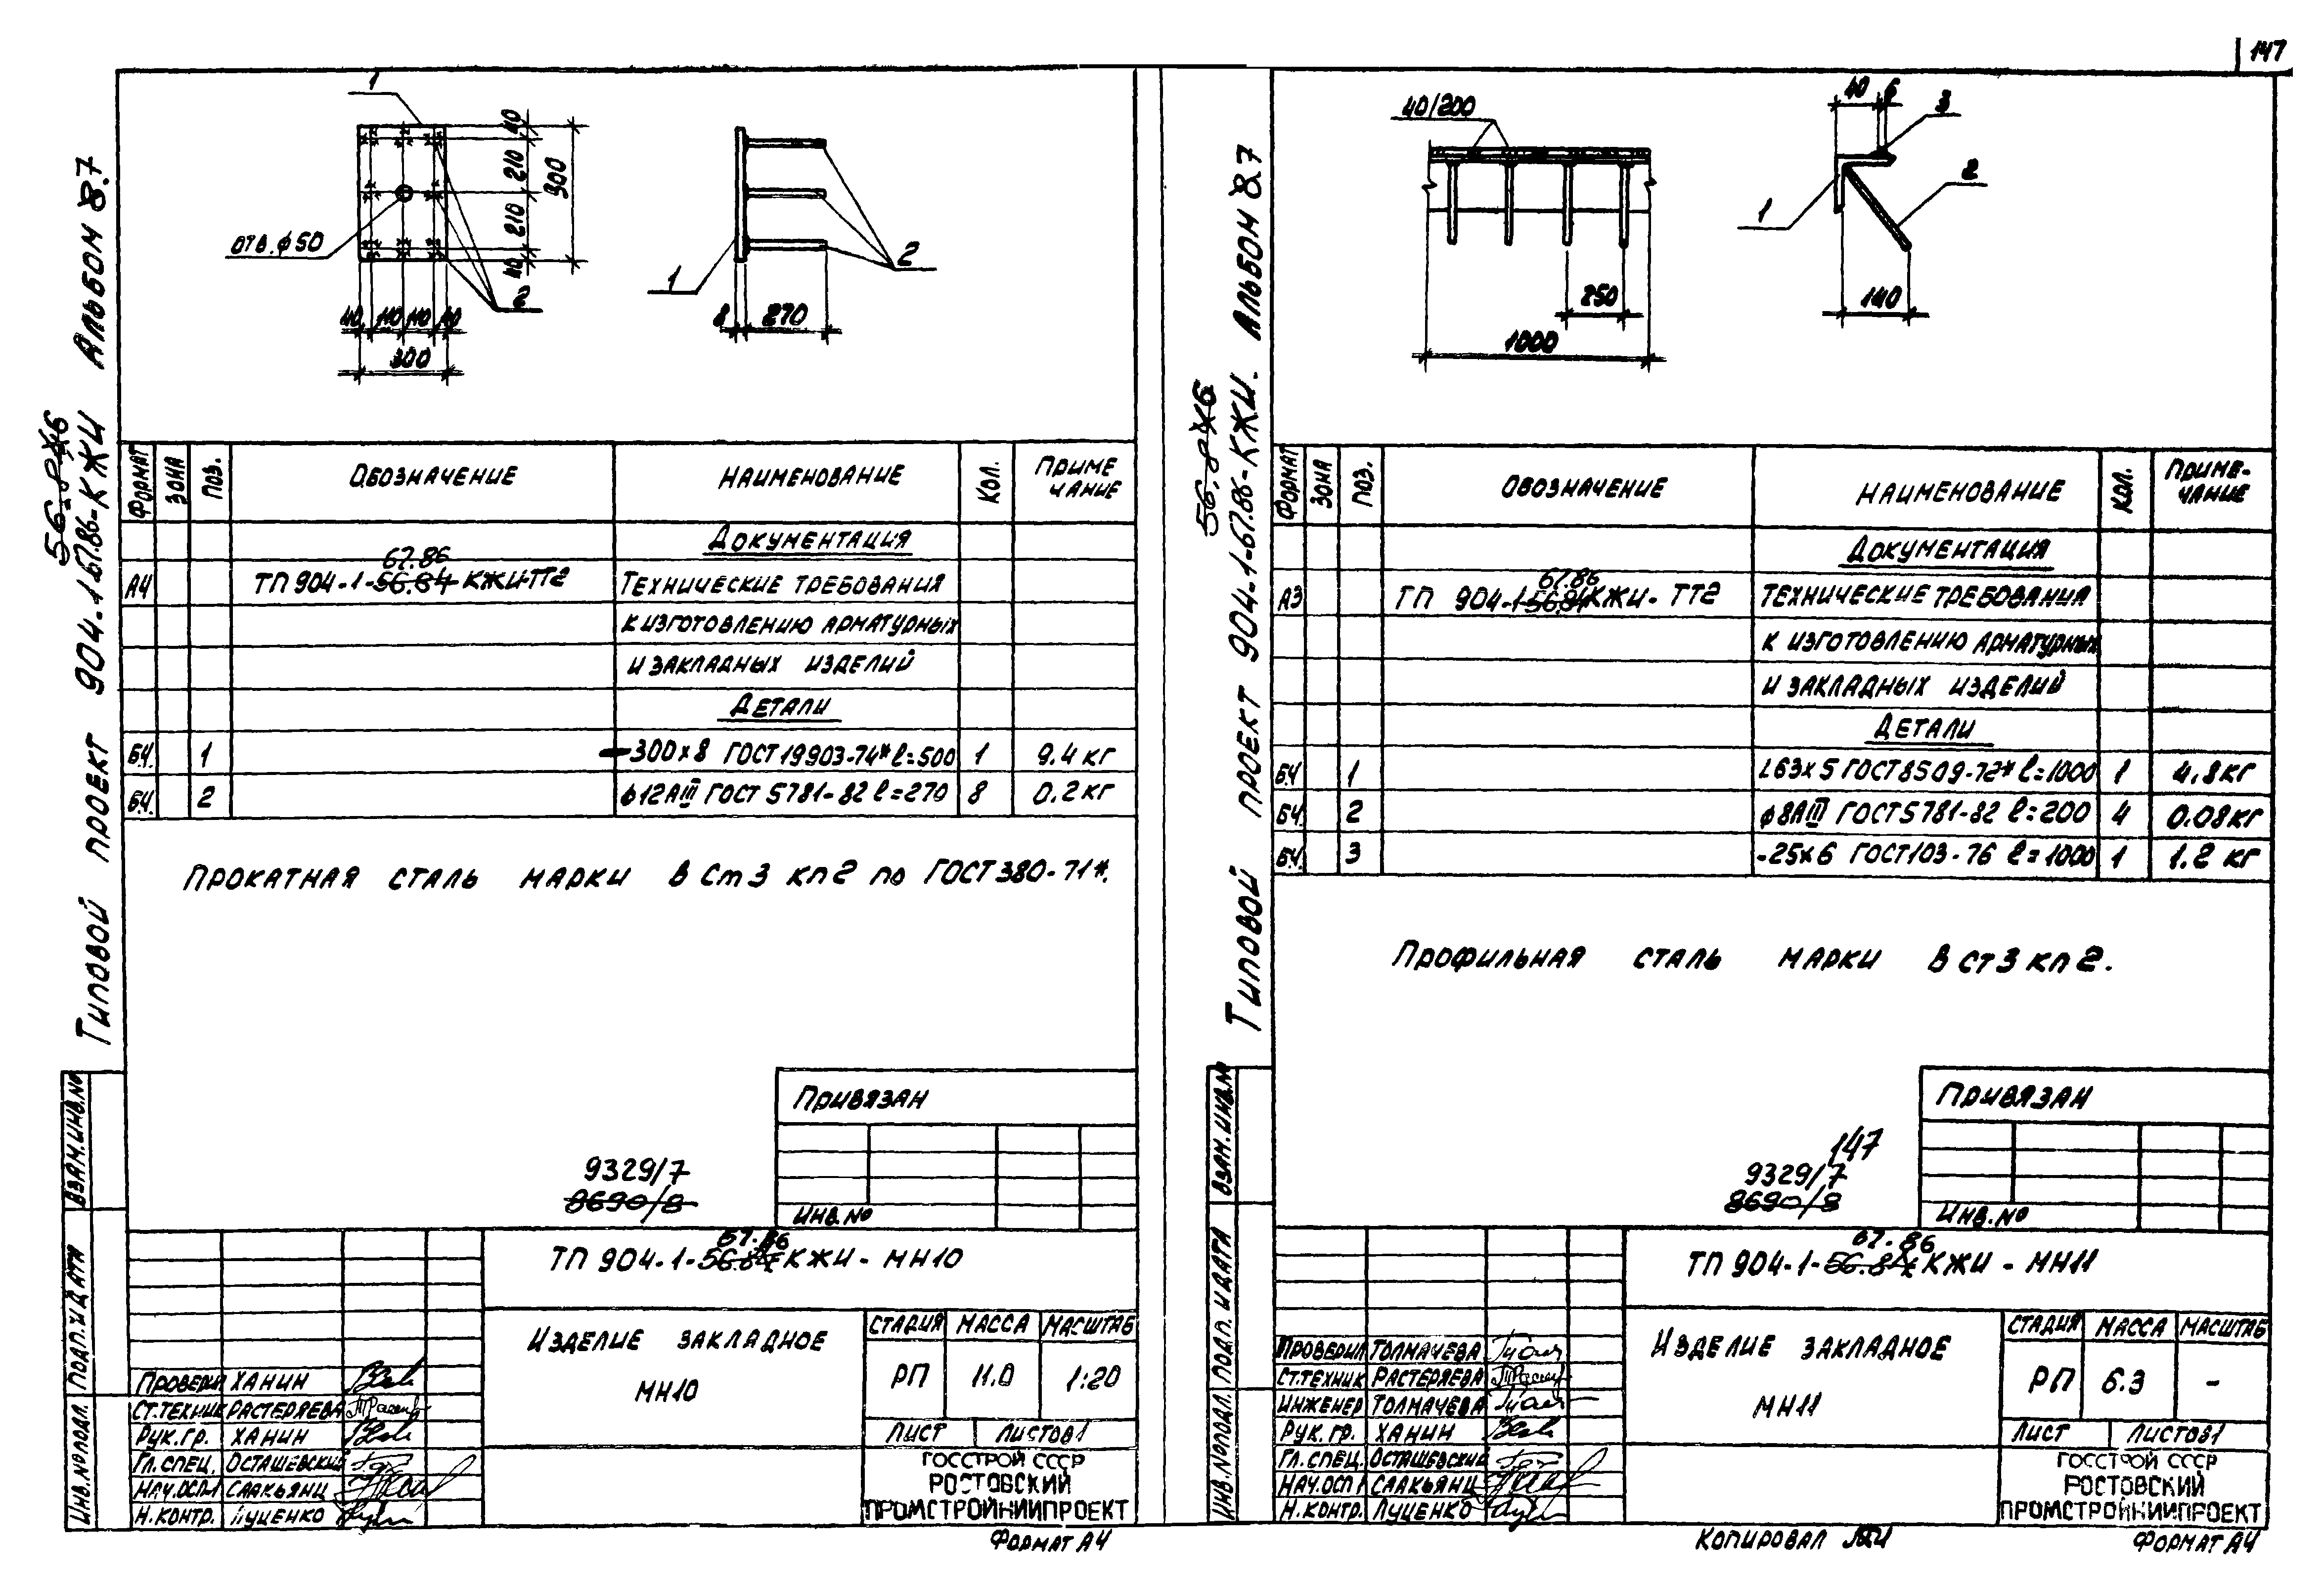 147
1
40
210
210
40
300
отв.ф50
2
40 110 110 40
300
1
2
8 270
40/200
250
1000
40 6
3
2
1
140
Альбом 8.7
Типовой проект 904-1-67.86-КЖИ
56.84
Формат Зона Поз. Обозначение Наименование Кол. Приме чание
Документация
67.86
А4 ТП 904-1-56.84 КЖИ-ТТ2 Технические требования
к изготовлению арматурных
и закладных изделий
Детали
БЧ. 1 -300х8 ГОСТ 19903-74* ℓ=500 1 9.4 кг
БЧ. 2 ф12АIII ГОСТ 5781-82 ℓ=270 8 0.2 кг
Прокатная сталь марки ВСт3 кп2 по ГОСТ 380-71*.
Привязан
Инв.№
9329/7
8690/8
67.86
ТП 904-1-56.84 КЖИ - МН10
Изделие закладное
МН10
Стадия Масса Масштаб
РП 11.0 1:20
Лист Листов 1
Госстрой СССР
Ростовский
ПРОМСТРОЙНИИПРОЕКТ
Проверил Ханин
Ст.техник Растеряева
Рук.гр. Ханин
Гл.спец. Осташевский
Нач.ОСП-1 Саакьянц
Н.контр. Луценко
Взам.инв.№
Подп. и дата
Инв.№ подл.
Формат А4
Альбом 8.7
Типовой проект 904-1-67.86-КЖИ.
56.84
Формат Зона Поз. Обозначение Наименование Кол. Приме-чание
Документация
67.86
А3 ТП 904-1-56.84 КЖИ-ТТ2 Технические требования
к изготовлению арматурных
и закладных изделий
Детали
БЧ 1 L63х5 ГОСТ 8509-72* ℓ=1000 1 4.8кг
БЧ. 2 ф8АIII ГОСТ 5781-82 ℓ=200 4 0.08кг
БЧ. 3 -25х6 ГОСТ 103-76 ℓ=1000 1 1.2 кг
Профильная сталь марки ВСт3 кп2.
Привязан
Инв.№
147
9329/7
8690/8
67.86
ТП 904-1-56.84 КЖИ - МН11
Изделие закладное
МН11
Стадия Масса Масштаб
РП 6.3 -
Лист Листов 1
Госстрой СССР
Ростовский
ПРОМСТРОЙНИИПРОЕКТ
Проверил Толмачева
Ст.техник Растеряева
Инженер Толмачева
Рук.гр. Ханин
Гл.спец. Осташевский
Нач.ОСП 1 Саакьянц
Н.контр. Луценко
Взам.инв.№
Подп. и дата
Инв.№ подл.
Копировал
Формат А4